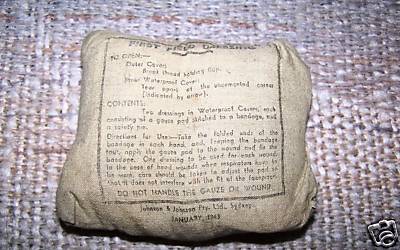 FIRST FIELD DRESSING
TO OPEN:—
Outer Cover:
Break thread holding flap.
Inner Waterproof Cover:
Tear apart at the uncemented corner
(indicated by arrow).
CONTENTS:
Two dressings in Waterproof Covers, each
consisting of a gauze pad stitched to a bandage, and
a safety pin.
Directions for Use—Take the folded ends of the
bandage in each hand, and, keeping the bandage
taut, apply the gauze pad to the wound and fix the
bandage. One dressing to be used for each wound.
In the case of head wounds when respirators have to
be worn, care should be taken to adjust the pad so
that it does not interfere with the fit of the facepiece.
DO NOT HANDLE THE GAUZE OR WOUND.
Johnson & Johnson Pty. Ltd., Sydney.
JANUARY, 1943